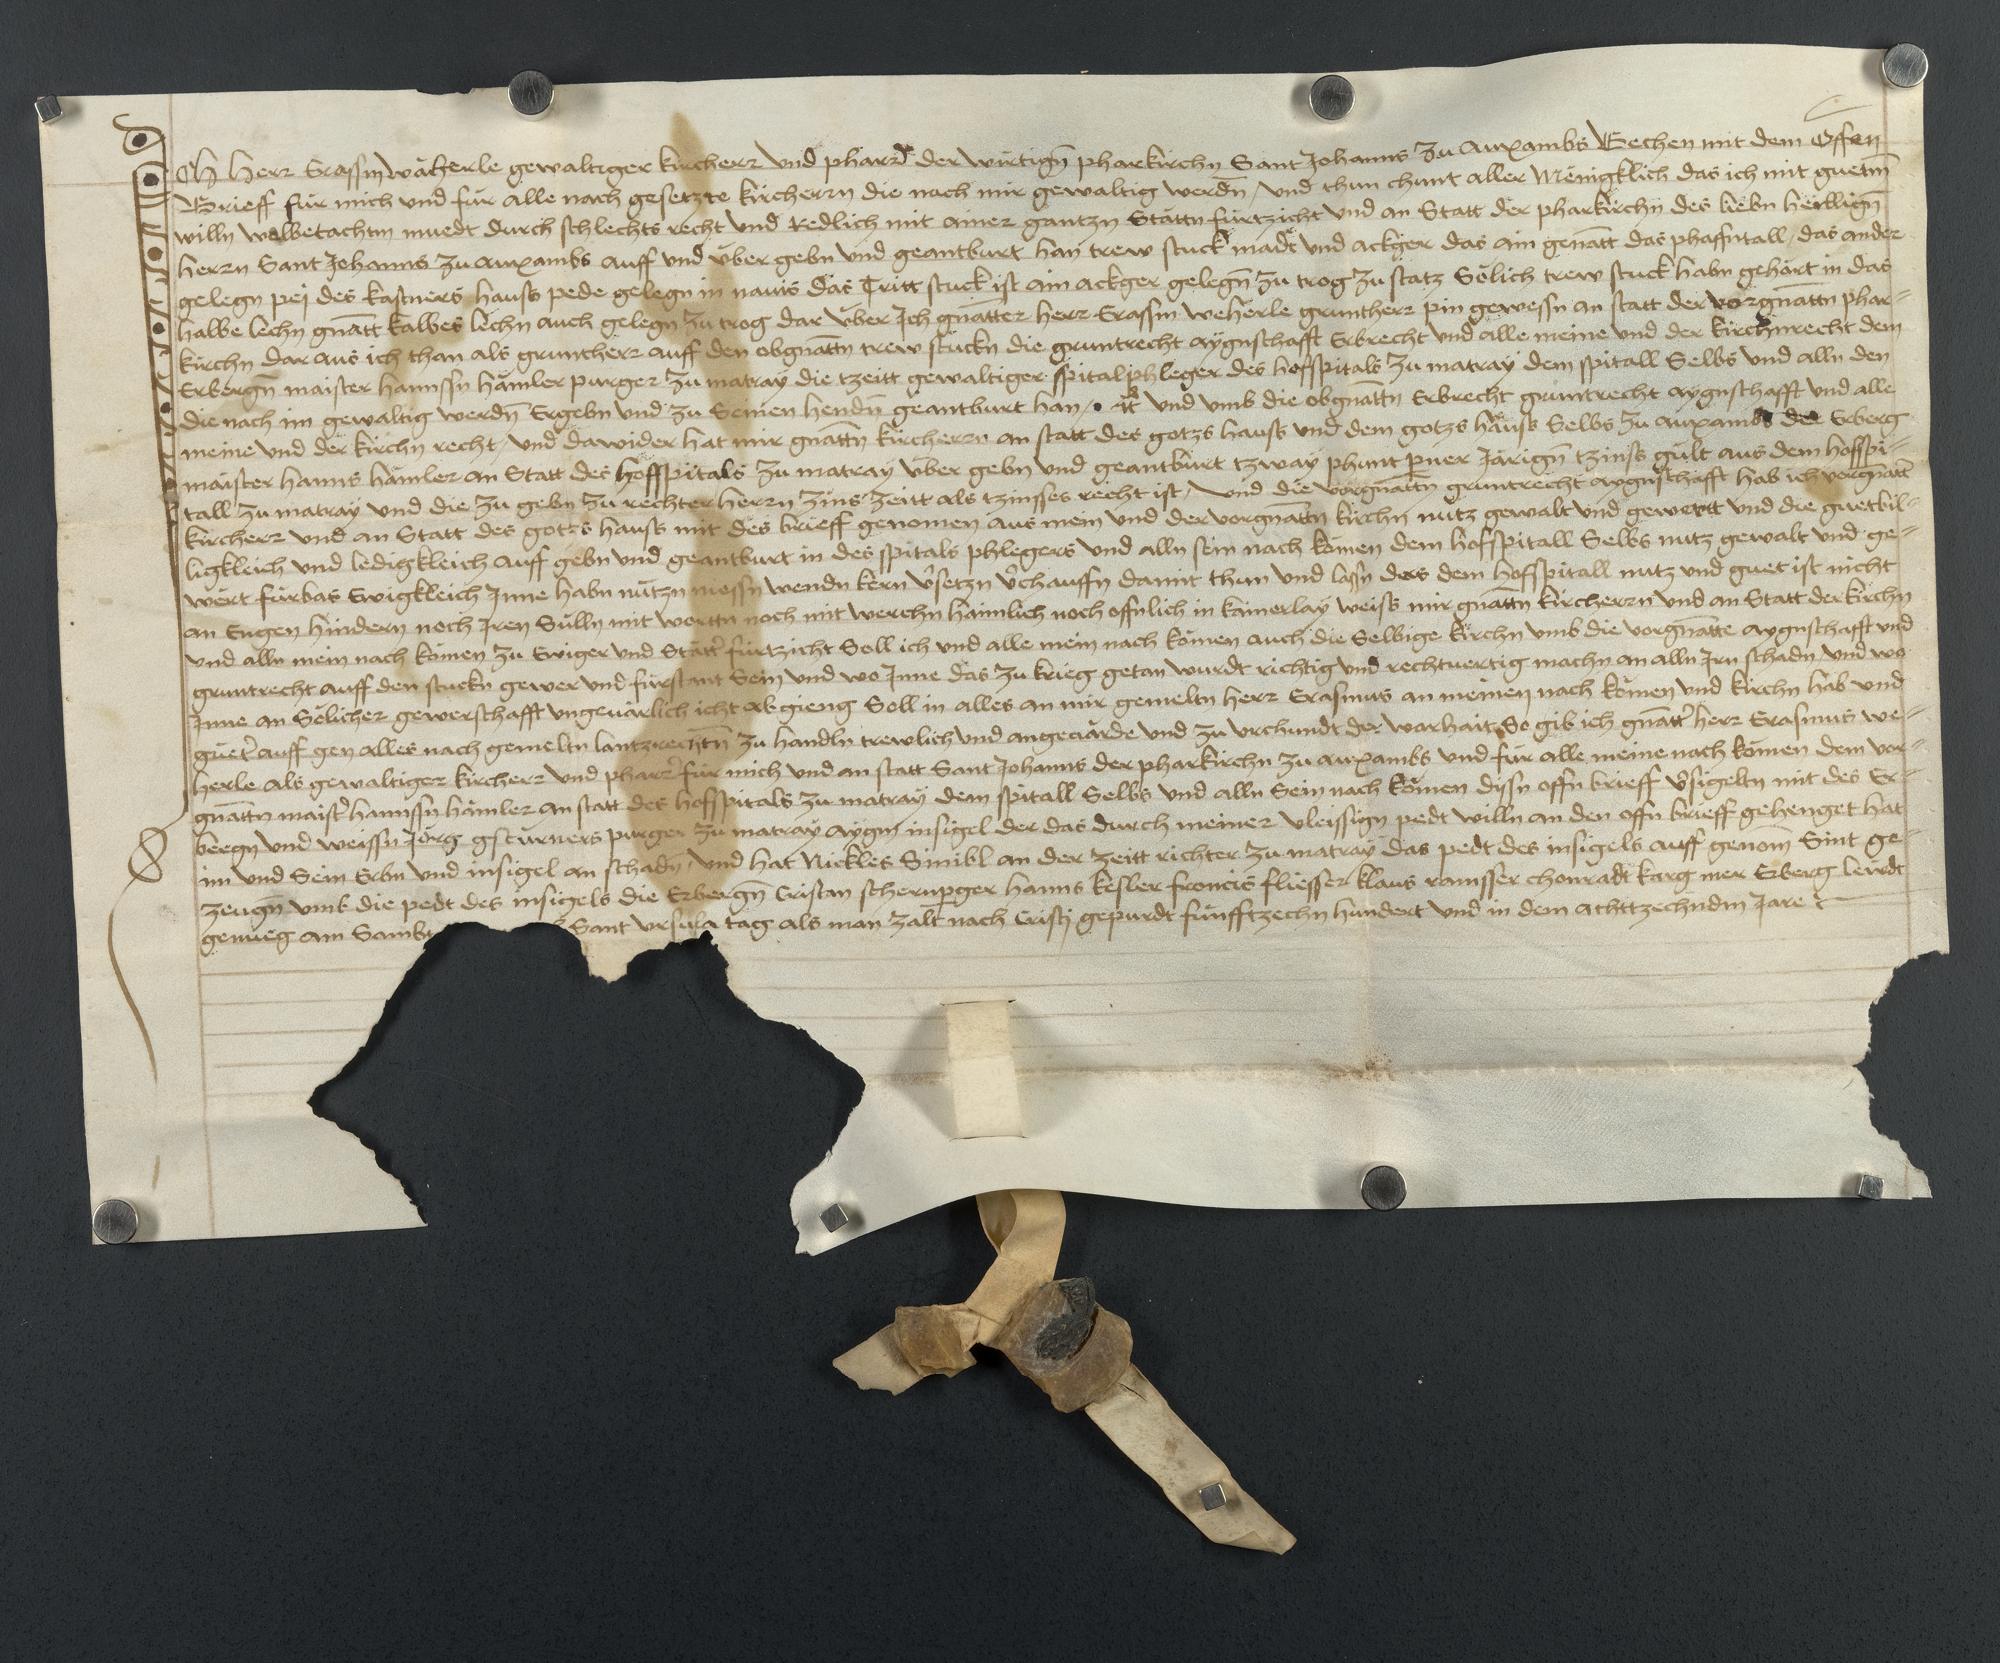 Ich Herr Erassm Wäherle gewaltiger kircherr vnd pharrer der wirtign pharkirchn Sant Johanns zu Auxambs Bechen mit dem Offen
Brieff für mich vnd für alle nach gesetzte kircherrn die nach mir gewaltig werdn / vnd thun chunt aller Mënigklich das ich mit guetm
willn wolbetachtm muedt durch schlechts recht vnd Redlich mit ainer gantzn Stättn fürtzicht vnd an Statt der pharkirchn des liebn heillign
herrn Sant Johanns zu Auxambs auff vnd über gebn vnd geantburt han trew stuck madt vnd ackher das ain genatt das phafntall / das ander
gelegn pej des kastners hauss pede gelegn in nauis das Tritt stuck ist ain ackger gelegn zu trog zu statz Sölich trew stuck habn gehört in das
halbe lechn gnatt kalbes lechn auch gelegn zu trog dar über Ich gnatter herr Erassm weherle gruntherr pin gewessn an statt der vorgnattn phar-
kirchn dar aus ich than als gruntherr auff den obgnattn trew stuckn die gruntrecht aygnschafft Erbrecht vnd alle meine vnd der kirchnrecht dem
Erbergn maister hannssn hämler purger zu matray die tzeitt gewaltiger spitalphleger des hofspitals zu matray dem spitall Selbs vnd alln den
die nach im gewaltig werdn Ergebn vnd zu Seinen hendn geantburt han / vnd vmb die obgnattn Erbrecht gruntrecht aygnschafft vnd alle
meine vnd der kirchn recht / vnd dawider hat mir gnattn kircherrn an statt des gotzs hauss vnd dem gotzs hauss Selbs zu auxambs der Erberg
maister hanns hämler an Statt des hofspitals zu matray über gebn vnd geantburt tzway phunt perner Järign tzinss gült aus dem hofspi-
tall zu matray vnd die zu gebn zu rechter herrn zins zeitt als tzinsses recht ist / vnd die vorgnattn gruntrecht aygnschafft hab ich vorgnatter
kircherr vnd an Statt des gotzs hauss mit des brieff genomen aus mein vnd der vorgnattn kirchn nutz gewalt vnd gewertt vnd die guetbil-
ligkleich vnd ledigkleich auff gebn vnd geantburt in des spitals phlegers vnd alln sein nach kömen dem hofspitall Selbs nutz gewalt vnd ge-
wert fürbas Ewigkleich Jnne habn nützn niessn wendn kern versetzn verchauffn damit thun vnd lassn das dem hofspitall nutz vnd guet ist nicht
an Eugen hindern noch Jren Sülln mit worttn noch mit werchn haimlich noch offnlich in kainerlay weiss mir gnattn kircherrn vnd an Statt der kirchn
vnd alln mein nach kömen zu Ewiger vnd Stätter fürtzicht Soll ich vnd alle mein nach kömen auch die Selbige kirchn vmb die vorgnatte aygnschafft vnd
gruntrecht auff den stuckn gewer vnd fürstant Sein vnd wo Jnne das zu krieg getan wurdt richtig vnd rechtuertig machn an alln Jrn schadn / vnd wo
Jnne an Sölicher gewerschafft vngeuärlich icht abgieng Soll in alles an mir gemeltn herr Erasmus an meinen nach kömen vnd kirchn hab vnd
gueter auff gen alles nach gemeltn lantzrechtn zu handln trewlich vnd angeuärde vnd zu vrchundt der worhait So gib ich gnatter herr Erasmus we-
herle als gewaltiger kircherr vnd pharrer für mich vnd an statt Sant Johanns der pharkirchn zu auxambs vnd für alle meine nach kömen dem vor-
gnattn maister hannssn hämler an statt des hofspitals zu matray dem spitall Selbs vnd alln Sein nach kömen dissn offn brieff versigeltn mit des Er-
bergn vnd weissn Jörg gstürners purger zu matray aygm insigel der das durch meiner vleissign pedt willn an den offn brieff gehenget hat
im vnd Sein Erbn vnd insigel an schadn / vnd hat Nickles Sinibl an der zeitt richter zu matray das pedt des insigels auff genom Sint ge-
zeugn vmb die pedt des insigels die Erbergn Cristan schernperger hanns kesler froncis fliesser klaus ramsser chonradt karg mer Erberg leudt
genueg am Sambt Sant vrsula tag als man zalt nach Cristj gepurdt fünfftzechn hundert vnd in dem achttzechndm Jare